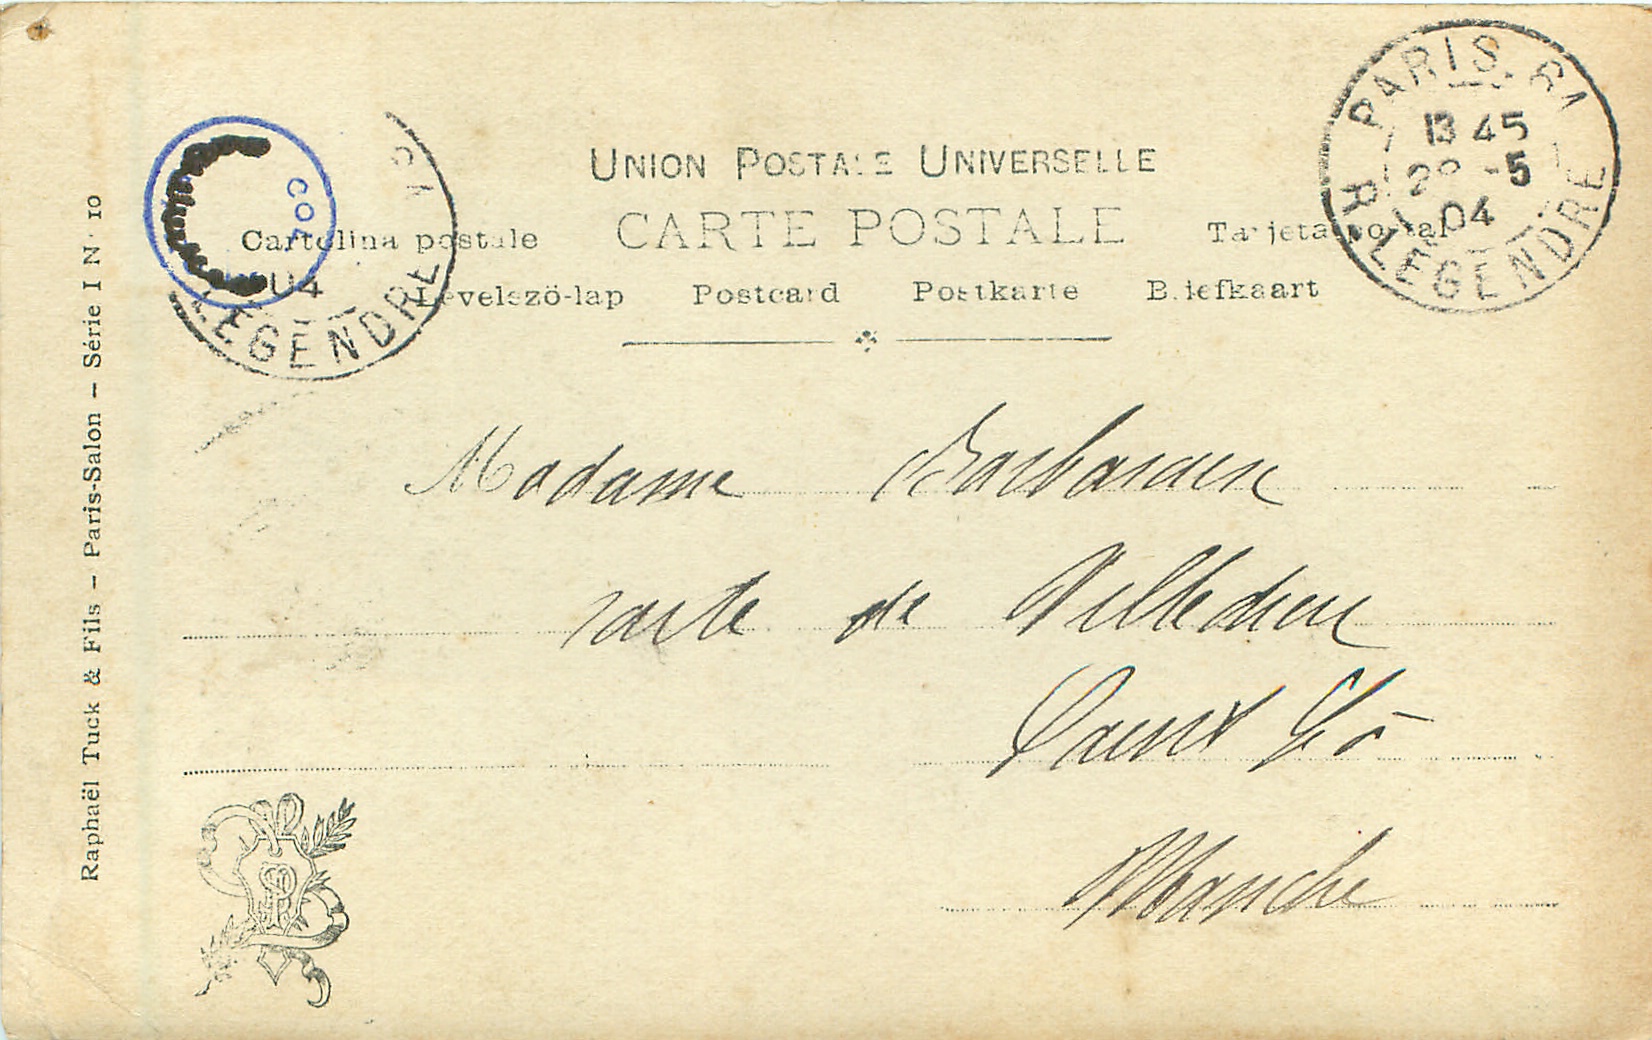 PARIS. 81
R. LEGENDRE
13 45
28 -5
04
COL
04
LEGENDRE
UNION POSTALE UNIVERSELLE
CARTE POSTALE
Cartolina postale
Tarjeta postal
Levelszö-lap Postcard Postkarte Briefkaart
Raphaël Tuck & Fils – Paris-Salon – Série I N· 10
Madame
route de Villedieu
Saint Lô
Manche